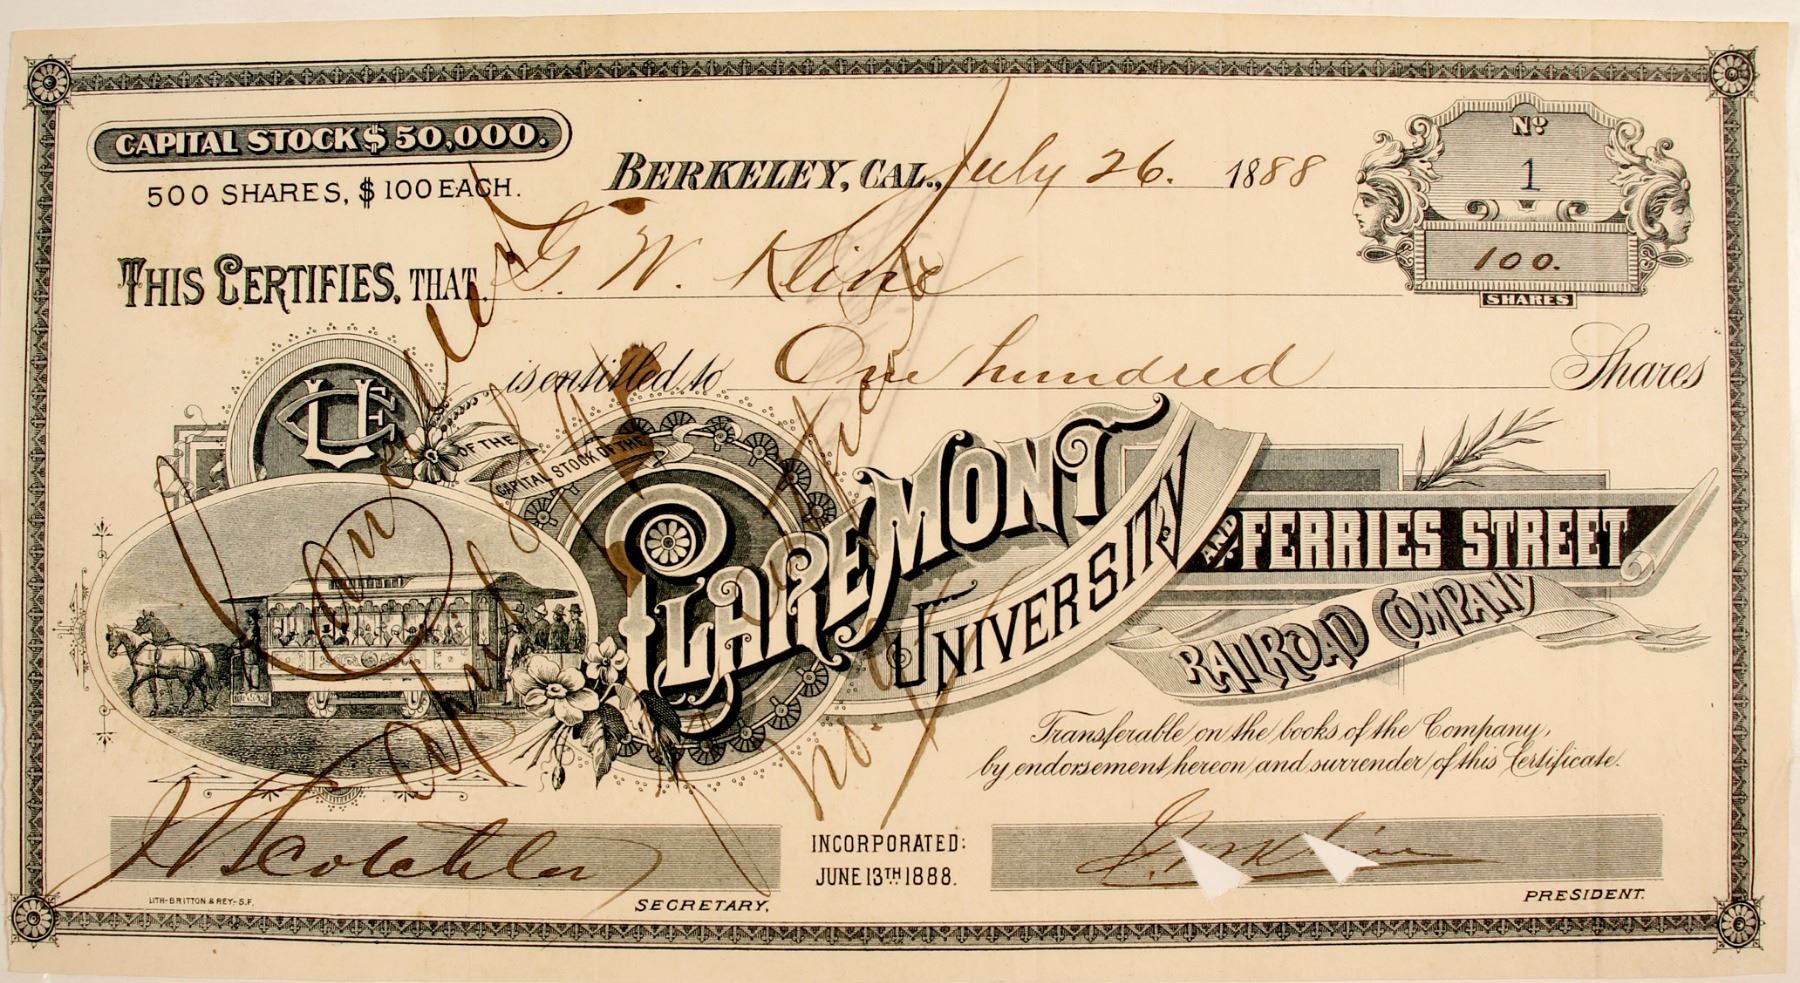 CAPITAL STOCK $50,000.
500 SHARES, $100 EACH.
BERKELEY, CAL., July 26. 1888
No.
1
100.
SHARES
THIS CERTIFIES, THAT G. W. Kline
is entitled to One hundred Shares
OF THE
CAPITAL STOCK OF THE
CLAREMONT
UNIVERSITY
AND FERRIES STREET
RAILROAD COMPANY
Transferable on the books of the Company,
by endorsement hereon and surrender of this Certificate.
Cancelled
April
INCORPORATED:
JUNE 13TH 1888.
G. W. Kline
LITH-BRITTON & REY-S.F.
SECRETARY,
PRESIDENT.